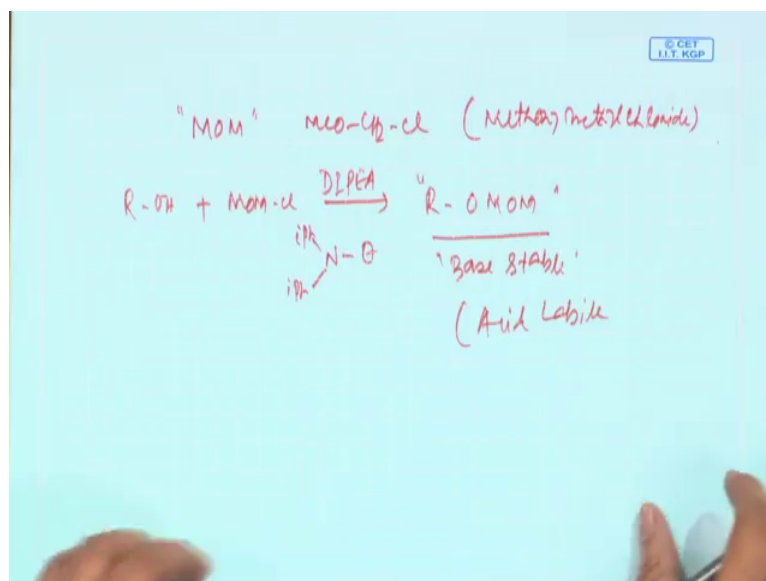 © CET
I.I.T. KGP
"MOM" MeO-CH2-Cl (Methoxy methyl chloride)
R-OH + MOM-Cl DIPEA → "R-OMOM"
iPr
N-Et
iPr
'Base stable'
(Acid Labile